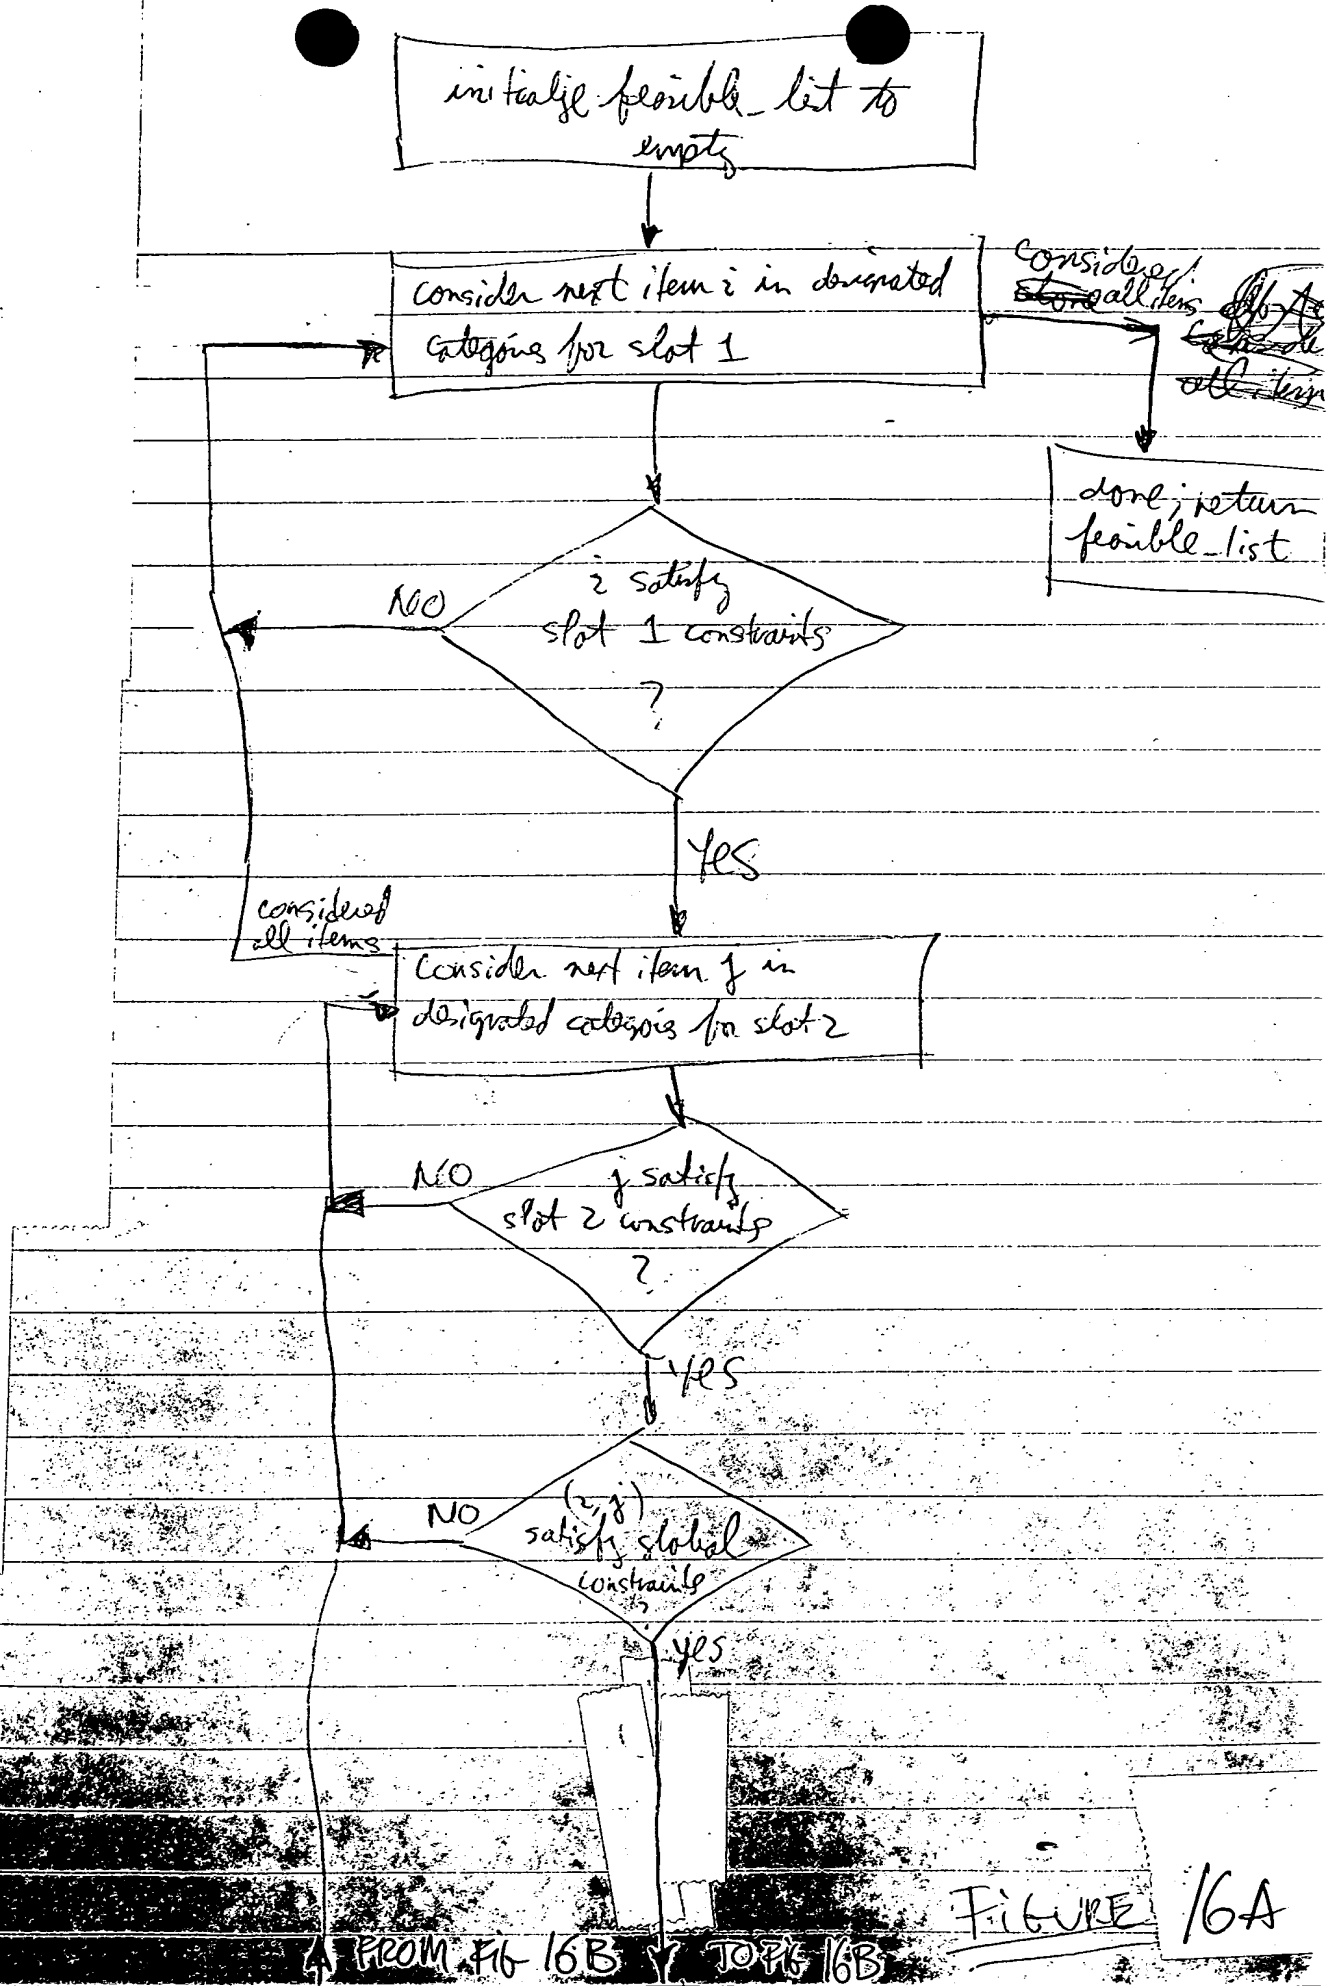 initialize feasible_list to
empty
consider next item i in designated
categories for slot 1
considered
all items
done; return
feasible_list
i satisfy
slot 1 constraints
?
NO
YES
considered
all items
Consider next item j in
designated categories for slot 2
NO
j satisfy
slot 2 constraints
?
YES
NO
(i, j)
satisfy global
constraints
?
yes
FIGURE 16A
FROM FIG 16B
TO FIG 16B